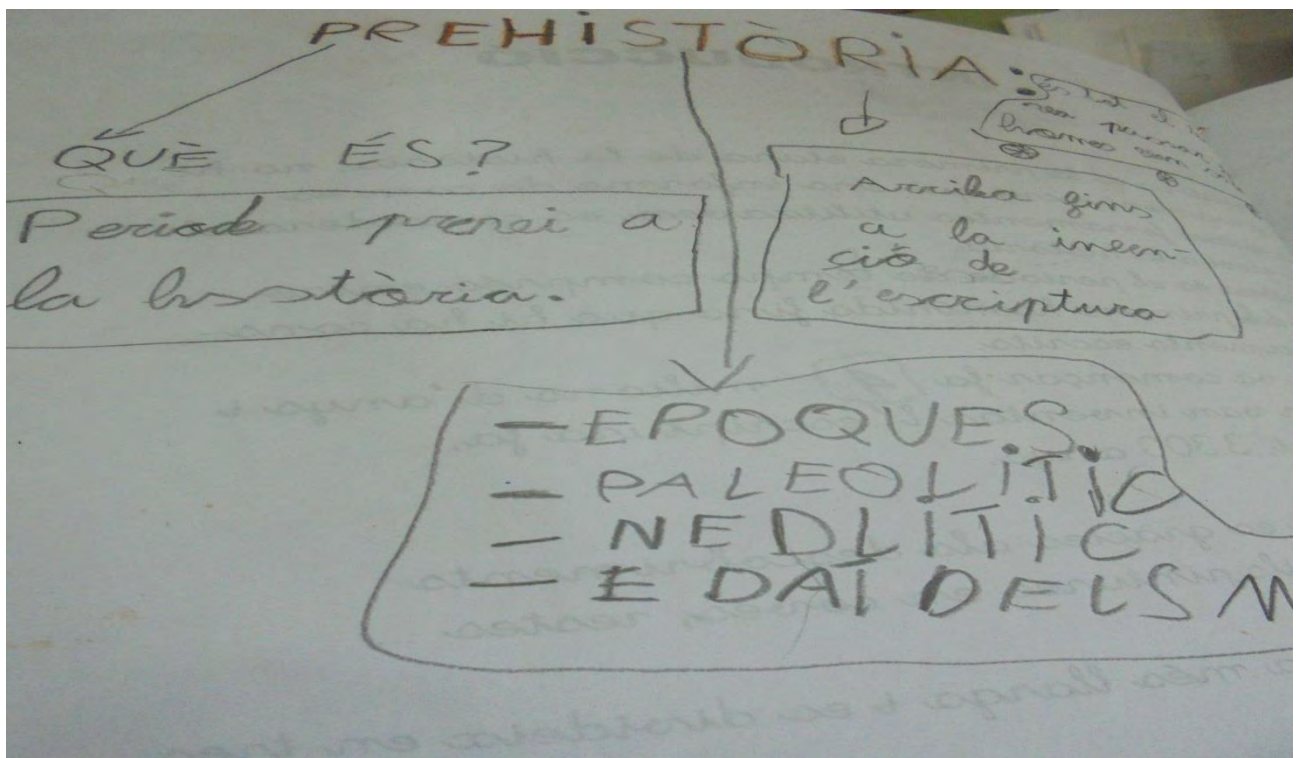 PREHISTÒRIA
QUÈ ÉS?
Periode prenei a
la hsstòria.
Arriba fins
a la inven-
ció de
l'escriptura
- EPOQUES.
- PALEOLÍTIC
- NEOLÍTIC
- EDAT DELS M